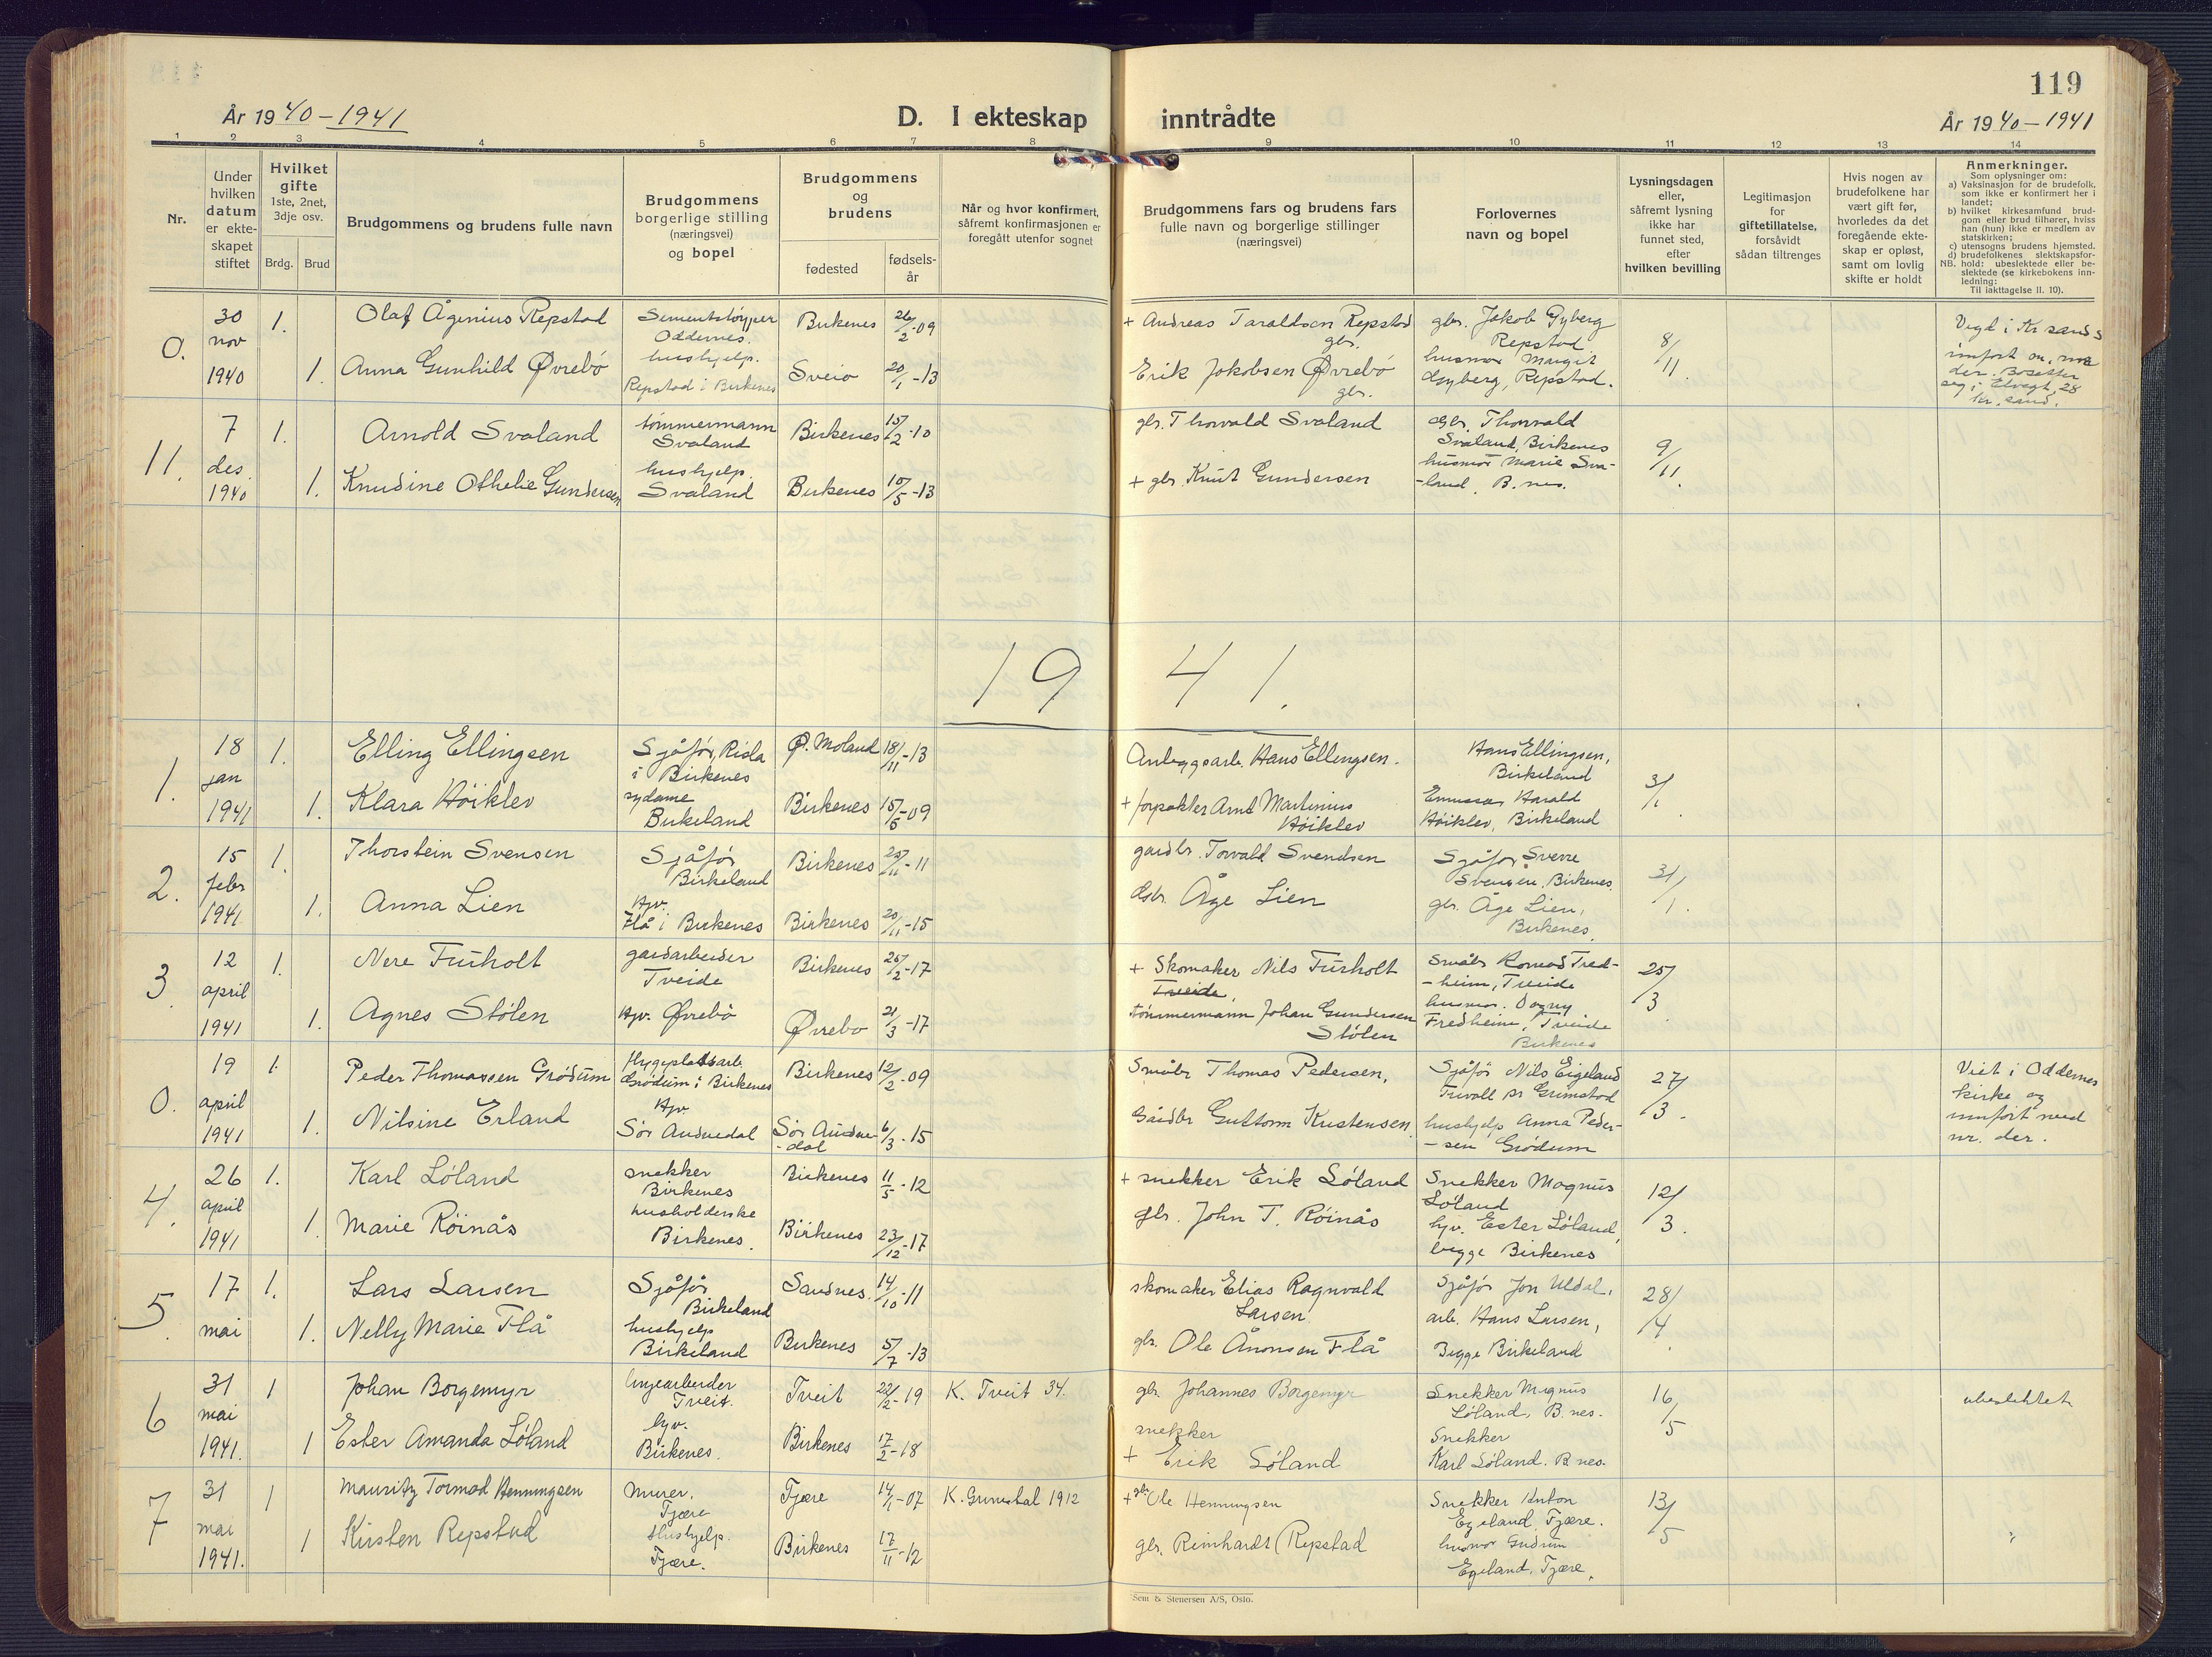 119
År 1940 – 1941
D. I ekteskap inntrådte
År 1940 – 1941
1 2 3 4 5 6 7 8 9 10 11 12 13 14
Nr.
Under
hvilken
datum
er ekte-
skapet
stiftet
Hvilket
gifte
1ste, 2net,
3dje osv.
Brdg. Brud
Brudgommens og brudens fulle navn
Brudgommens
borgerlige stilling
(næringsvei)
og bopel
Brudgommens
og
brudens
fødested
fødsels-
år
Når og hvor konfirmert,
såfremt konfirmasjonen er
foregått utenfor sognet
Brudgommens fars og brudens fars
fulle navn og borgerlige stillinger
(næringsvei)
Forlovernes
navn og bopel
Lysningsdagen
eller,
såfremt lysning
ikke har
funnet sted,
efter
hvilken bevilling
Legitimasjon
for
giftetillatelse,
forsåvidt
sådan tiltrenges
Hvis nogen av
brudefolkene har
vært gift før,
hvorledes da det
foregående ekte-
skap er opløst,
samt om lovlig
skifte er holdt
Anmerkninger.
Som oplysninger om:
a) Vaksinasjon for de brudefolk,
som ikke er konfirmert her i
landet;
b) hvilket kirkesamfund brud-
gom eller brud tilhører, hviss
han (hun) ikke er medlem av
statskirken;
c) utensogns brudens hjemsted.
d) brudefolkenes slektskapsfor-
NB. hold: ubeslektede eller be-
slektede (se kirkebokens inn-
ledning:
Til iakttagelse II. 10).
0.
30 nov 1940
1.
Olaf Ågenius Repstad
Sementstøyper
Oddernes.
Birkenes 26/2-09
+ Andreas Taraldsen Repstad
gbr.
gbr. Jakob Gyberg
Repstad
8/11
Vigd i Kr sands
innfört
Bosetter
seg i Elvegt. 28
Kr. sand.
1.
Anna Gunhild Øvrebö
hushjelp.
Repstad i Birkenes
Sveio 20/1-13
Erik Jakobsen Øvrebö
gbr.
husmor Margit
Gyberg, Repstad.
11.
7 des. 1940
1.
Arnold Svaland
tømmermann
Svaland
Birkenes 15/2-10
gbr. Thorvald Svaland
gbr. Thorvald
Svaland, Birkenes
9/11.
1.
Knudine Othelie Gundersen
hushjelp
Svaland
Birkenes 10/5-13
+ gbr. Knut Gundersen
husmor Marie Sva-
-land. B.nes.
1941.
1.
18 jan 1941
1.
Elling Ellingsen
Sjåfør, Risla
i Birkenes
Ø. Moland 18/11-13
Anleggsarb. Hans Ellingsen.
Hans Ellingsen,
Birkeland
3/1.
1.
Klara Höiklev
sydame
Birkeland
Birkenes 15/5-09
+ forpakter Arnt Martinius
Höiklev
Harald
Höiklev, Birkeland
2.
15 febr 1941
1.
Thorstein Svensen
Sjåfør
Birkeland
Birkenes 25/11-11
gardbr. Torvald Svendsen
Sjåfør Sverre
Svensen, Birkenes.
31/1.
1.
Anna Lien
Hjv.
Flå i Birkenes
Birkenes 20/11-15
gbr. Åge Lien
gbr. Åge Lien,
Birkenes.
3.
12 april 1941
1.
Nere Furholt
gardarbeider
Tveide
Birkenes 25/2-17
+ Skomaker Nils Furholt
Tveide,
Småbr Konrad Fred-
-heim, Tveide
25/3.
1.
Agnes Stölen
Hjv. Øvrebö
Øvrebö 21/3-17
tömmermann Johan Gundersen
Stölen
husmor. Dagny
Fredheim, Tveide
Birkenes
0.
19 april 1941
1.
Peder Thomassen Grödum
Flygeplassarb.
Grödum i Birkenes
Birkenes 12/2-09
Småbr Thomas Pedersen,
Sjåfør Nils Eigeland
Trivoll pr Grimstad
27/3.
Viet i Oddernes
kirke og
innfört med
nr. der.
1.
Nilsine Erland
Hjv.
Sör Audnedal
Sör Audne-
-dal 6/3-15
Gårdbr Guttorm Kristensen.
hushjelp Anna Peder-
-sen Grödum
4.
26 april 1941
1.
Karl Löland
snekker
Birkenes
Birkenes 11/5-12
+ snekker Erik Löland
Snekker Magnus
Löland
12/3.
1.
Marie Röinås
husholderske
Birkenes.
Birkenes 23/12-17
gbr. John T. Röinås
hjv. Ester Löland,
begge Birkenes
5.
17 mai
1.
Lars Larsen
Sjåför
Birkeland
Sandnes. 14/10-11
skomaker Elias Ragnvald
Larsen
Sjåför Jon Uldal,
arb. Hans Larsen,
Begge Birkeland
28/4.
1.
Nelly Marie Flå
hushjelp
Birkeland
Birkenes 5/7-13
gbr. Ole Ånonsen Flå
6
31 mai 1941.
1
Johan Borgemyr
Tveit.
Tveit 22/2-19
K. Tveit 34.
gbr. Johannes Borgemyr
Snekker Magnus
Löland, B.nes.
16/5
ubeslektet
1
Ester Amanda Löland
hjv.
Birkenes.
Birkenes 17/2-18
snekker
+ Erik Löland
Snekker
Karl Löland. B.nes.
7
31 mai 1941.
1
Mauritz Tormod Henningsen
Murer,
Fjære
Fjære 14/1-07
K. Grimstad 1912
+ gbr Ole Henningsen
Snekker Anton
Egeland, Fjære.
13/5
"
1
Kirsten Repstad
Hushjelp.
Fjære.
Birkenes 17/11-12
gbr. Reinhardt Repstad
husmor Gudrun
Egeland, Fjære.
Sem & Stenersen A/S, Oslo.